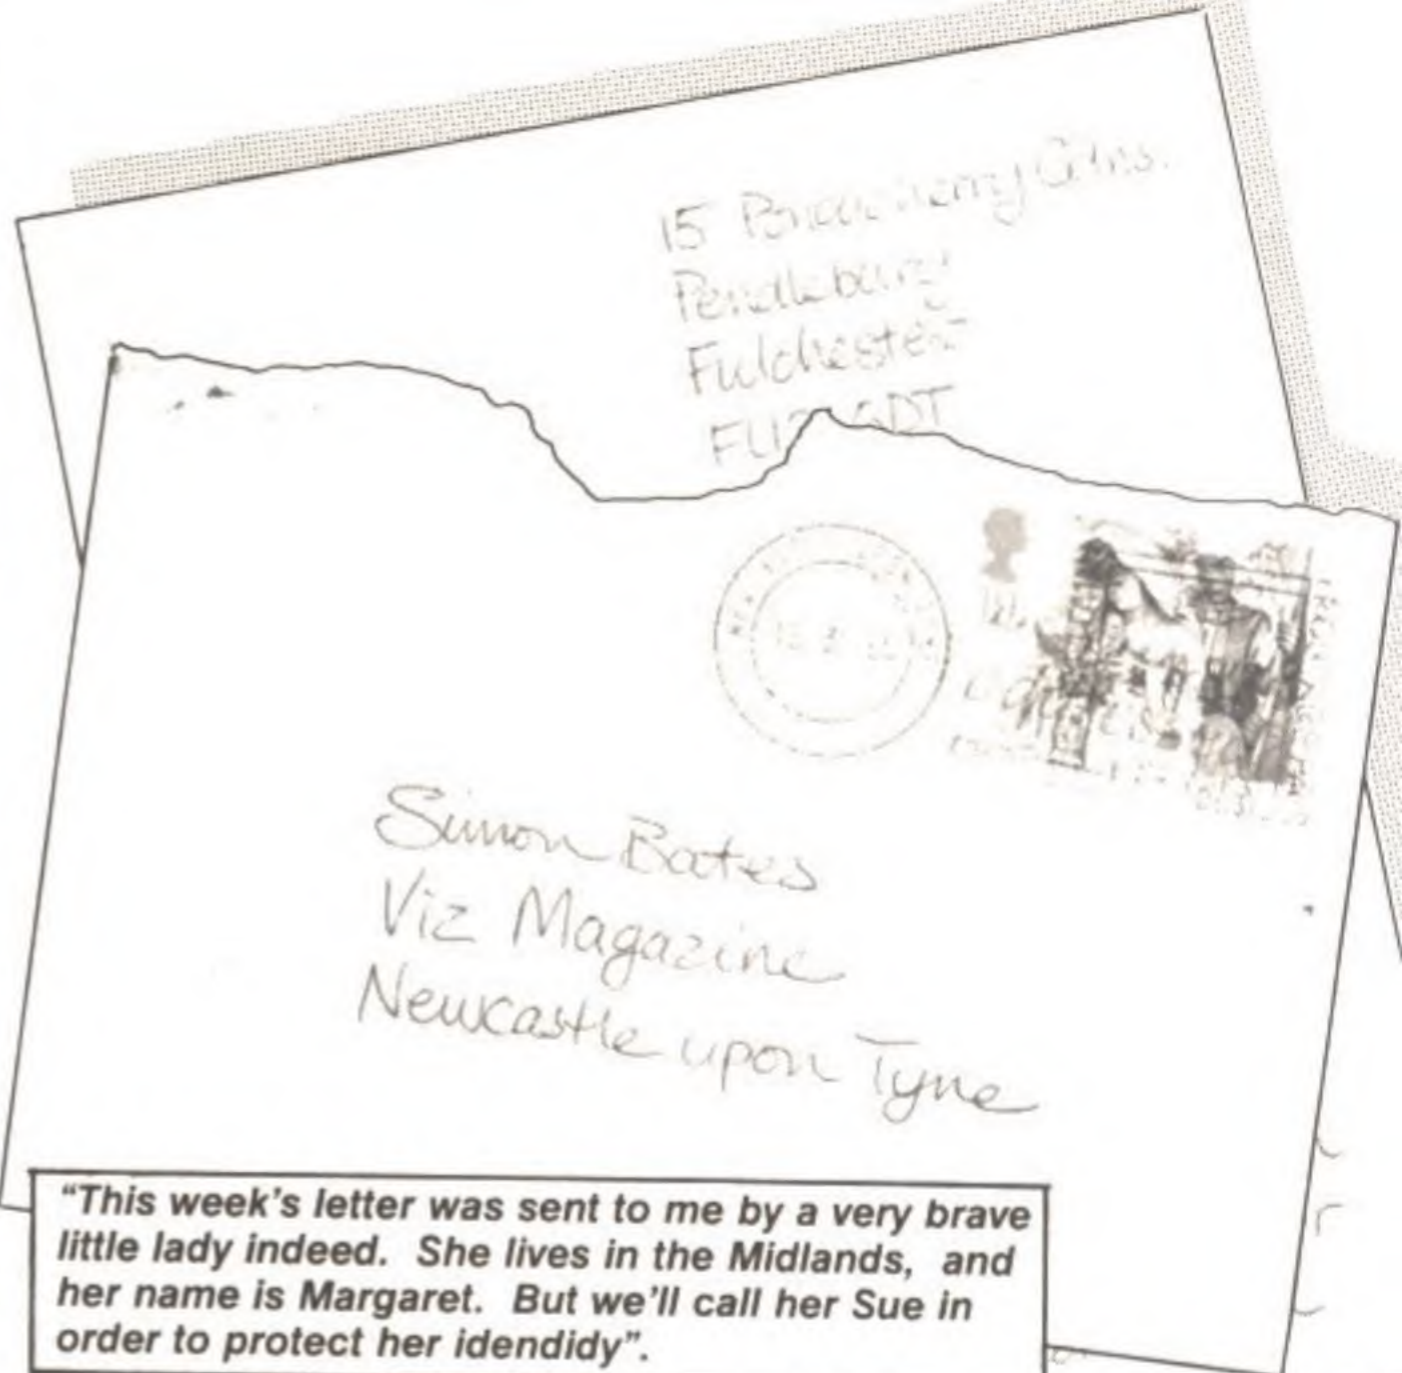 15
Pendlebury
Fulchester
Simon Bates
Viz Magazine
Newcastle upon Tyne
“This week’s letter was sent to me by a very brave
little lady indeed. She lives in the Midlands, and
her name is Margaret. But we’ll call her Sue in
order to protect her idendidy”.